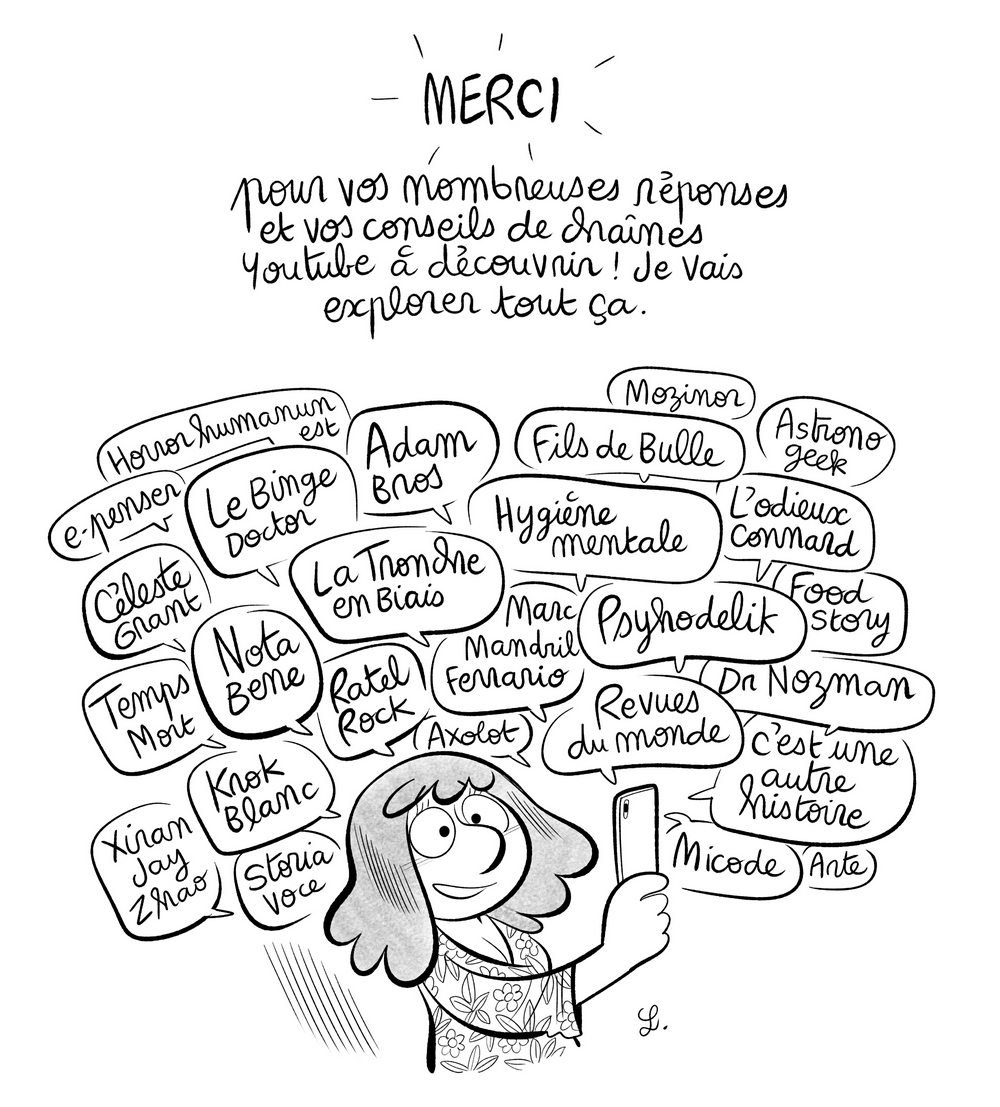 MERCI
pour vos nombreuses réponses
et vos conseils de chaînes
Youtube à découvrir ! Je vais
explorer tout ça.
Mozinor
Horror humanum
est
Adam
Bros
Fils de Bulle
Astrono
geek
e-penser
Le Binge
Doctor
Hygiène
mentale
L'odieux
connard
Céleste
Grant
La Tronche
en Biais
Marc
Mandril
Ferrario
Psyhodelik
Food
Story
Nota
Bene
Temps
Mort
Ratel
Rock
Axolot
Revues
du monde
Dr Nozman
Knok
Blanc
c'est une
autre
histoire
Xiran
Jay
Zhao
Storia
Voce
Micode
Arte
L.